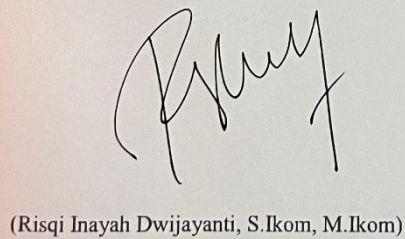 (Risqi Inayah Dwijayanti, S.Ikom, M.Ikom)